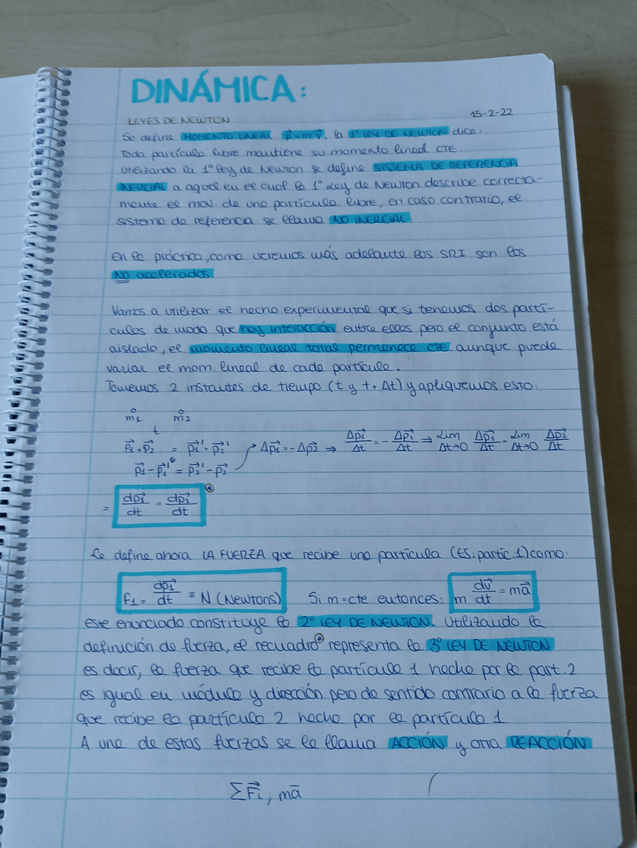 DINÁMICA:
LEYES DE NEWTON 15-2-22
Se define MOMENTO LINEAL p⃗=mv⃗, la 1º LEY DE NEWTON dice:
Toda partícula libre mantiene su momento lineal CTE
Utilizando la 1º Ley de Newton se define SISTEMA DE REFERENCIA
INERCIAL a aquel en el cual la 1º Ley de Newton describe correcta-
mente el mov. de una partícula libre, en caso contrario, el
sistema de referencia se llama NO INERCIAL
En la práctica, como veremos más adelante los SRI son los
NO acelerados
Vamos a utilizar el hecho experimental que si tenemos dos partí-
culas de modo que hay interacción entre ellas pero el conjunto está
aislado, el momento lineal total permanece CTE aunque puede
variar el mom. lineal de cada partícula.
Tomemos 2 instantes de tiempo (t y t+Δt) y apliquemos esto:
m1 m2
t
p⃗1+p⃗2 = p⃗1'+p⃗2'
p⃗1-p⃗1' = p⃗2'-p⃗2 Δp⃗1=-Δp⃗2 ⇒ Δp⃗1/Δt = -Δp⃗2/Δt → Lim Δt→0 Δp⃗1/Δt = Lim Δt→0 Δp⃗2/Δt
= dp⃗1/dt = dp⃗2/dt
Se define ahora LA FUERZA que recibe una partícula (ES: partic. 1) como:
F1 = dp⃗1/dt ≡ N (Newtons) Si m=cte entonces: m dv⃗/dt = ma⃗
este enunciado constituye la 2º LEY DE NEWTON. Utilizando la
definición de fuerza, el recuadro representa la 3º LEY DE NEWTON
es decir, la fuerza que recibe la partícula 1 hecha por la part. 2
es igual en módulo y dirección pero de sentido contrario a la fuerza
que recibe la partícula 2 hecha por la partícula 1
A una de estas fuerzas se le llama ACCIÓN y otra REACCIÓN
∑F⃗i, ma⃗